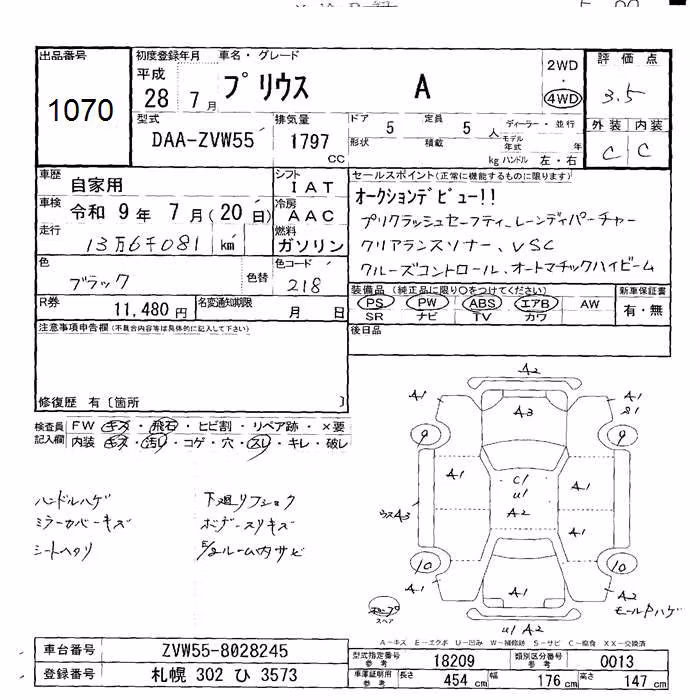 出品番号
1070
初度登録年月 車名・グレード
平成
28 7月
プリウス A
2WD
・
4WD
評価点
3.5
外装 内装
C C
型式 排気量
DAA-ZVW55 1797 CC
ドア 5 定員 5 人 ディーラー・並行
形状 積載 kg モデル年式 年
ハンドル 左・右
車歴 自家用
シフト IAT
車検 令和 9年 7月(20日)
冷房 AAC
走行 13万6千081 km
燃料 ガソリン
色 ブラック 色替
色コード 218
R券 11,480円
名変通知期限 月 日
セールスポイント(正常に機能するものに限ります)
オークションデビュー!!
プリクラッシュセーフティ、レーンディパーチャー
クリアランスソナー、VSC
クルーズコントロール、オートマチックハイビーム
装備品(純正品に限り○をつけてください) 新車保証書
PS PW ABS エアB AW 有・無
SR ナビ TV カワ
後日品
注意事項申告欄(不具合内容等は具体的に記入して下さい)
修復歴 有〔箇所 〕
検査員記入欄
FW キズ・飛石・ヒビ割・リペア跡・×要
内装 キズ・汚れ・コゲ・穴・スレ・キレ・破レ
ハンドルハゲ 下廻リフショク
ミラーカバーキズ ボデースリキズ
シートヘタリ E/gルーム内サビ
A2
A1 A3 A1
9 9
A1 C1 U1 A1
A2
ウスA3 A1
10 10
A1 A1 A2
モールPハゲ
スペア
U1 A2
A-キズ E-エクボ U-凹み W-補修跡 S-サビ C-腐食 XX-交換済
車台番号 ZVW55-8028245
登録番号 札幌 302 ひ 3573
型式指定番号 参考 18209 類別区分番号 参考 0013
車庫証明用 参考 長さ 454 cm 幅 176 cm 高さ 147 cm